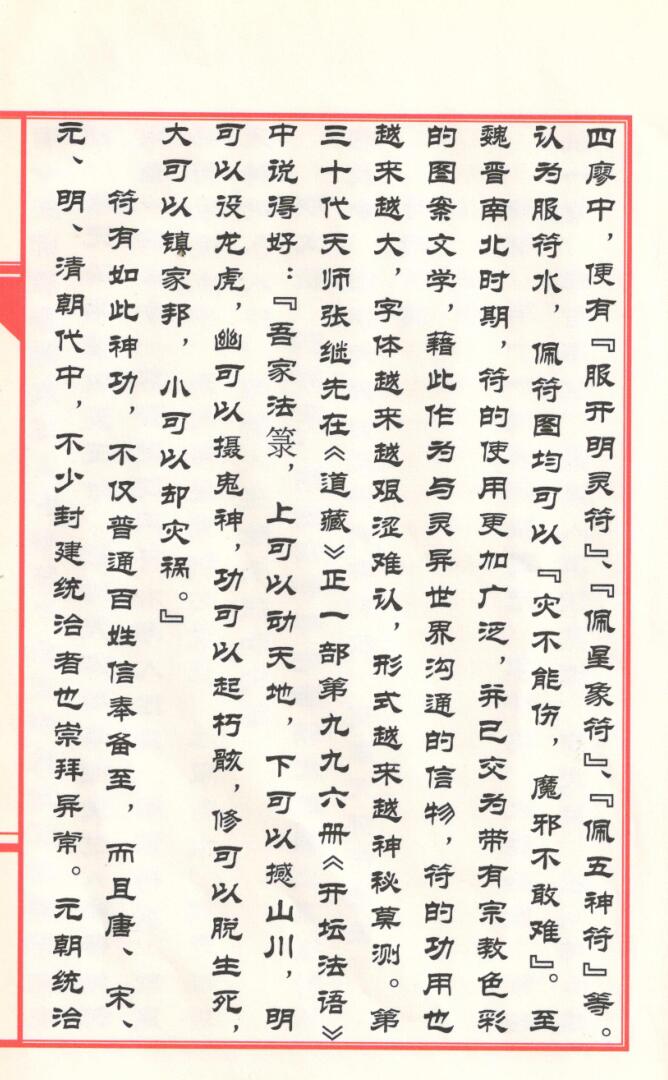 四廖中，便有『服开明灵符』、『佩星象符』、『佩五神符』等。
认为服符水，佩符图均可以『灾不能伤，魔邪不敢难』。至
魏晋南北时期，符的使用更加广泛，并已交为带有宗教色彩
的图案文学，藉此作为与灵异世界沟通的信物，符的功用也
越来越大，字体越来越艰涩难认，形式越来越神秘莫测。第
三十代天师张继先在《道藏》正一部第九九六册《开坛法语》
中说得好：『吾家法箓，上可以动天地，下可以撼山川，明
可以役龙虎，幽可以摄鬼神，功可以起朽骸，修可以脱生死，
大可以镇家邦，小可以却灾祸。』
符有如此神功，不仅普通百姓信奉备至，而且唐、宋、
元、明、清朝代中，不少封建统治者也崇拜异常。元朝统治